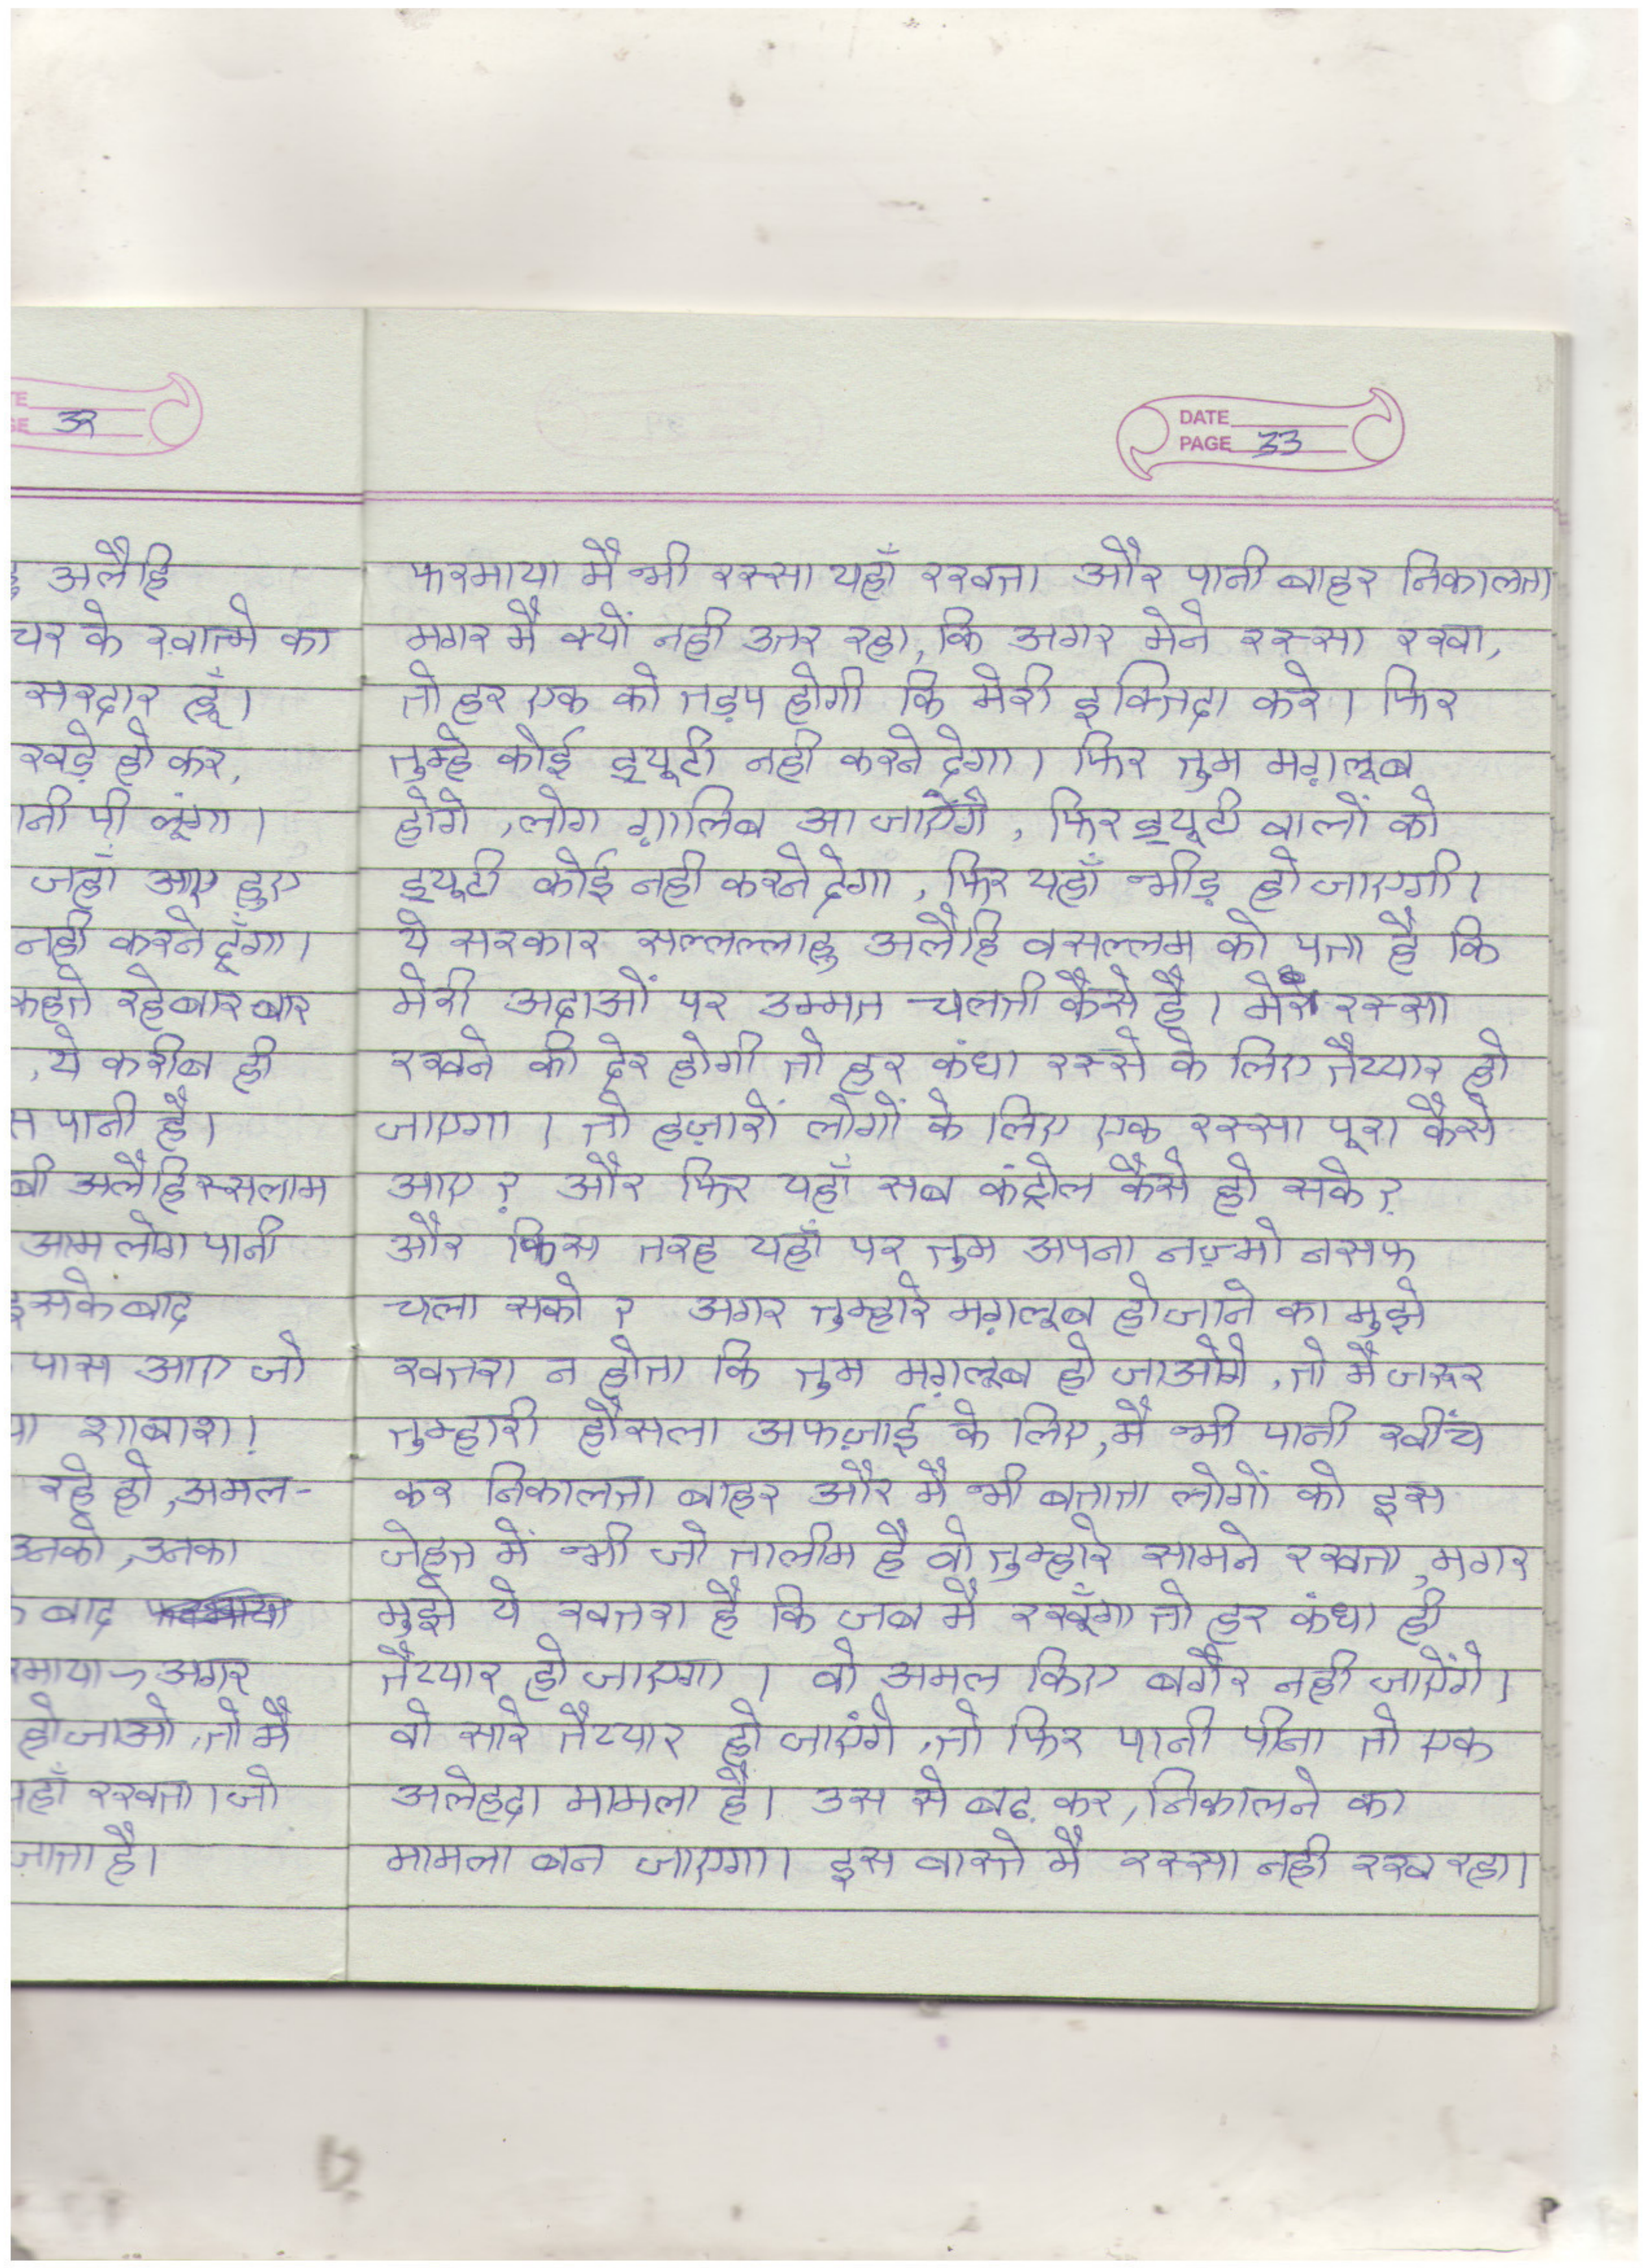 E
GE 32
अलैहि
चर के ख़ात्मे का
सरदार हूँ।
खड़े हो कर,
नी पी लूंगा।
जहाँ आए हुए
नही करने दूँगा।
कहते रहे बार बार
, ये करीब ही
पानी है।
बी अलैहिस्सलाम
आम लोग पानी
इसके बाद
पास आए जो
शाबाश!
रहे हो, अमल-
उनको, उनका
बाद
रमाया → अगर
हो जाओ, तो मै
यहाँ रखता। जो
जाता है।
DATE
PAGE 33
फरमाया मै भी रस्सा यहाँ रखता और पानी बाहर निकालता
मगर मै क्यों नही उतर रहा, कि अगर मेने रस्सा रखा,
तो हर एक को तड़प होगी कि मेरी इक्तिदा करे। फिर
तुम्हे कोई ड्यूटी नही करने देगा। फिर तुम मग़लूब
होगे, लोग ग़ालिब आ जाऐंगे, फिर ड्यूटी वालों को
ड्यूटी कोई नही करने देगा, फिर यहाँ भीड़ हो जाएगी।
ये सरकार सल्लल्लाहु अलैहि वसल्लम को पता है कि
मेरी अदाओं पर उम्मत चलती कैसे है। मेरे रस्सा
रखने की देर होगी तो हर कंधा रस्से के लिए तैय्यार हो
जाएगा। तो हज़ारों लोगों के लिए एक रस्सा पूरा कैसे
आए? और फिर यहाँ सब कंट्रोल कैसे हो सके?
और किस तरह यहाँ पर तुम अपना नज़्मो नसक
चला सको? अगर तुम्हारे मग़लूब हो जाने का मुझे
खतरा न होता कि तुम मग़लूब हो जाओगे, तो मै जरूर
तुम्हारी हौसला अफज़ाई के लिए, मै भी पानी खींच
कर निकालता बाहर और मै भी बताता लोगों को इस
जेहत में भी जो तालीम है वो तुम्हारे सामने रखता, मगर
मुझे ये खतरा है कि जब मै रखूँगा तो हर कंधा ही
तैय्यार हो जाएगा। वो अमल किए बगैर नही जाऐंगे।
वो सारे तैय्यार हो जाएंगे, तो फिर पानी पीना तो एक
अलेहदा मामला है। उस से बढ़ कर, निकालने का
मामला बन जाएगा। इस वास्ते मै रस्सा नही रख रहा।